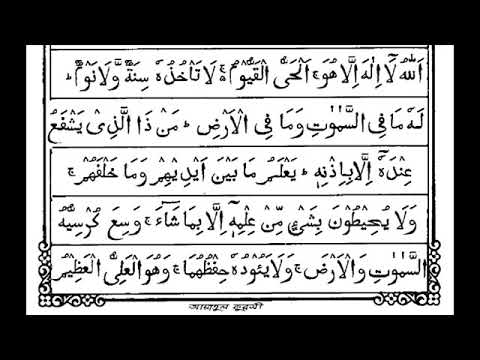 اَللّٰهُ لَآ اِلٰهَ اِلَّا هُوَ ۚ اَلْحَىُّ الْقَيُّوْمُ ۚ لَا تَاْخُذُهٗ سِنَةٌ وَّلَا نَوْمٌ ؕ
لَهٗ مَا فِى السَّمٰوٰتِ وَمَا فِى الْاَرْضِ ؕ مَنْ ذَا الَّذِىْ يَشْفَعُ
عِنْدَهٗۤ اِلَّا بِاِذْنِهٖ ؕ يَعْلَمُ مَا بَيْنَ اَيْدِيْهِمْ وَمَا خَلْفَهُمْ ۚ
وَلَا يُحِيْطُوْنَ بِشَىْءٍ مِّنْ عِلْمِهٖۤ اِلَّا بِمَا شَآءَ ۚ وَسِعَ كُرْسِيُّهُ
السَّمٰوٰتِ وَالْاَرْضَ ۚ وَلَا يَئُوْدُهٗ حِفْظُهُمَا ۚ وَهُوَ الْعَلِىُّ الْعَظِيْمُ
আয়াতুল কুরসী